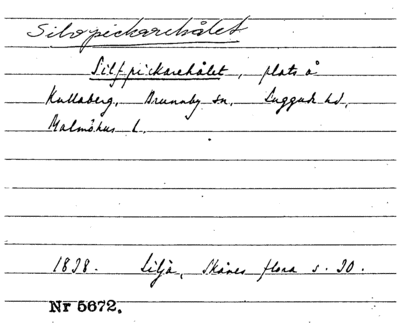 Silvpickarehålet
Silfpickarehålet, plats å
Kullaberg, Brunnby sn. Luggude hd,
Malmöhus l.
1838. Lilja, Skånes flora s. 30.
Nr 5672.